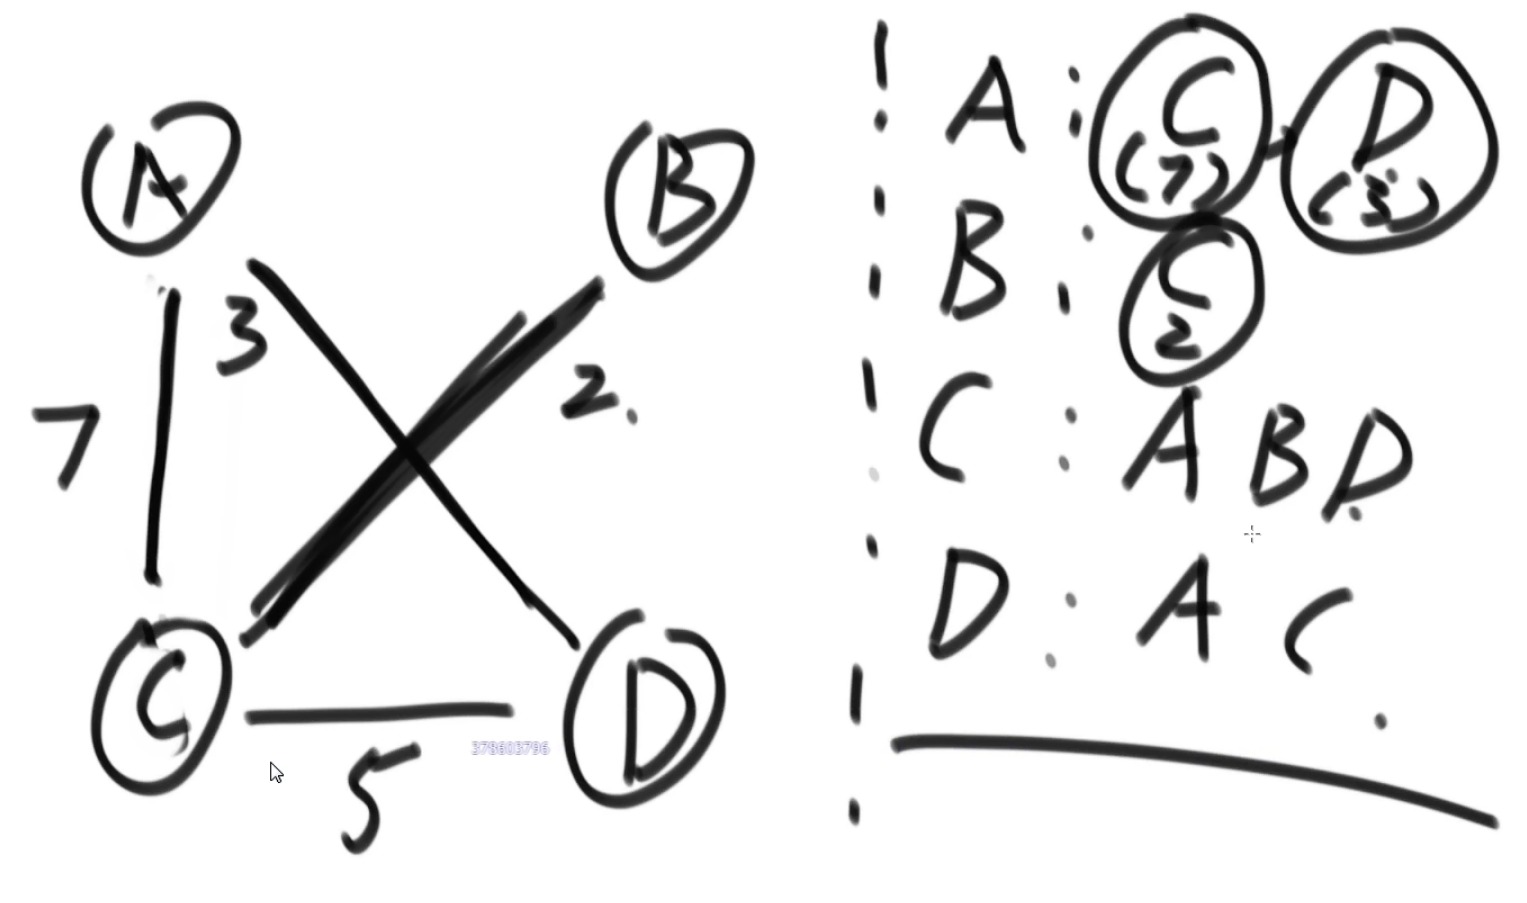 A
B
3
2.
7
C
D
5
378603796
A : C (7) - D (3)
B : C 2
C : A B D
D : A C